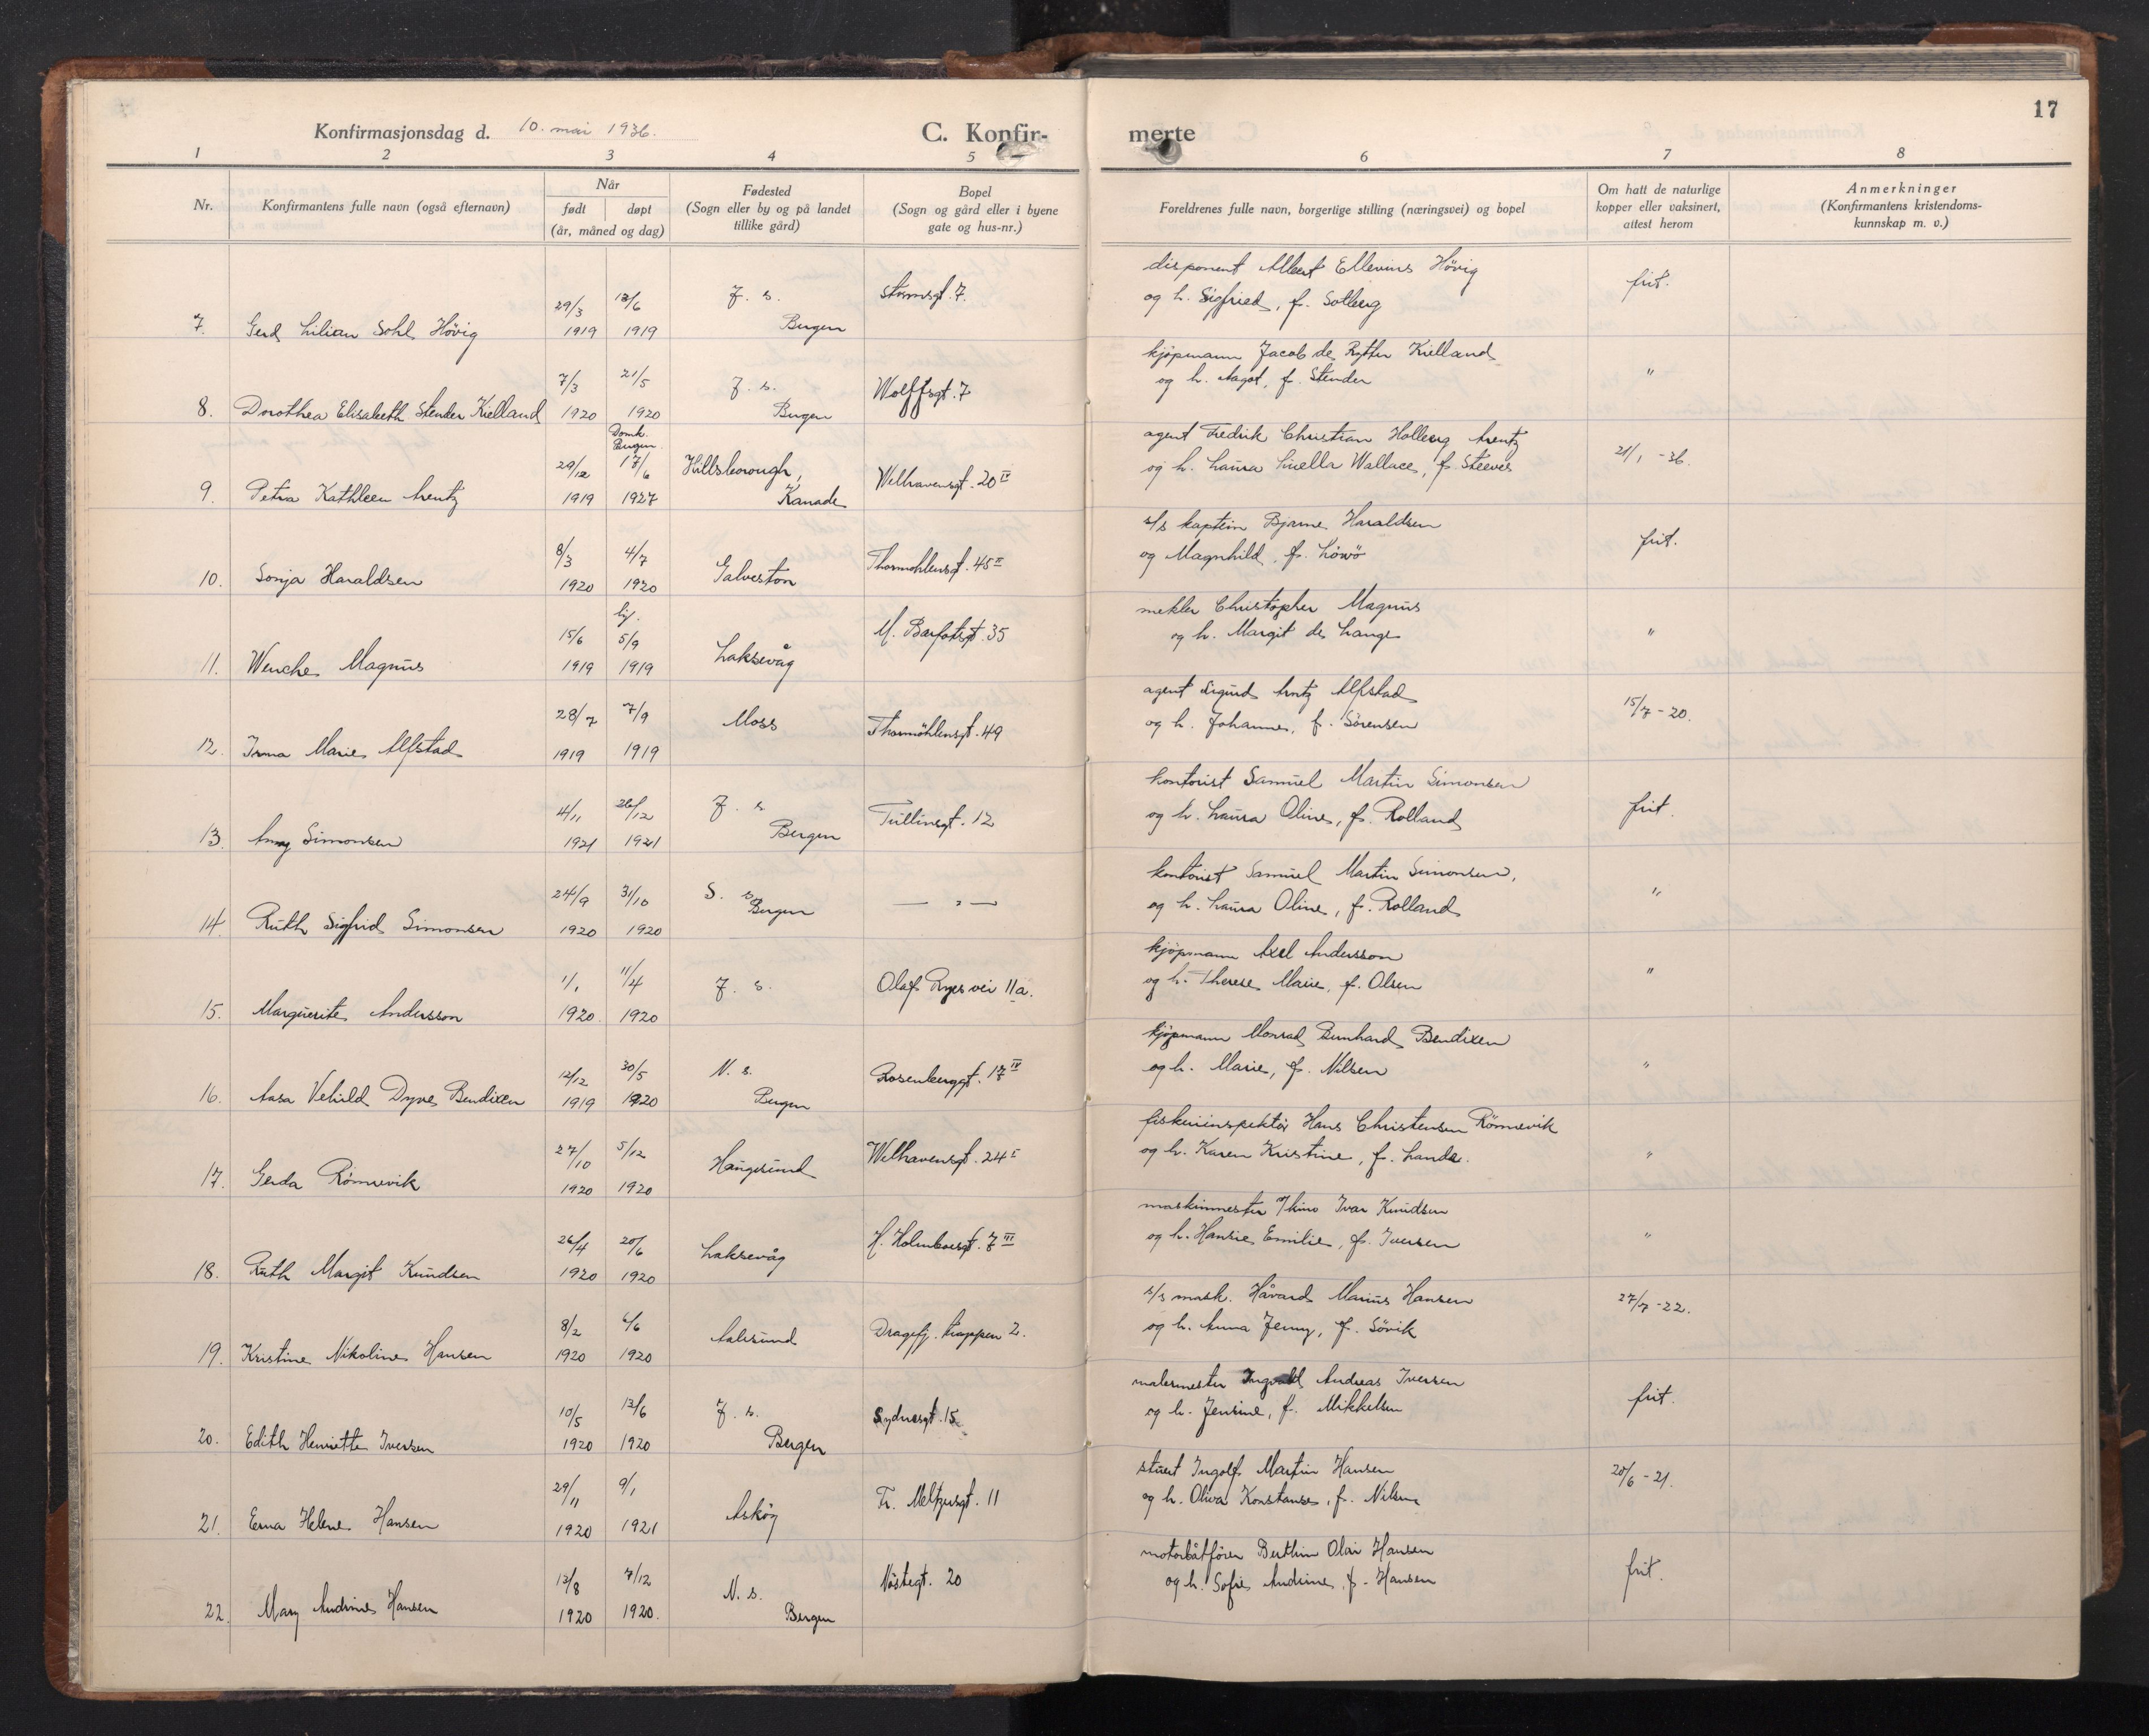 17
Konfirmasjonsdag d. 10. mai 1936. C. Konfir- merte
1 2 3 4 5 6 7 8
Nr.
Konfirmantens fulle navn (også efternavn)
Når
født døpt
(år, måned og dag)
Fødested
(Sogn eller by og på landet
tillike gård)
Bopel
(Sogn og gård eller i byene
gate og hus-nr.)
Foreldrenes fulle navn, borgerlige stilling (næringsvei) og bopel
Om hatt de naturlige
kopper eller vaksinert,
attest herom
Anmerkninger
(Konfirmantens kristendoms-
kunnskap m. v.)
disponent Albert Ellevius Hövig
29/3 13/6 J. s. Strømgt. 7. og h. Sigfried, f. Solberg frit.
7. Gerd Lilian Sohl Hövig 1919 1919 Bergen
kjøpmann Jacob de Rytter Kielland
7/3 21/5 J. s. Wolffsgt. 7 og h. Aagot, f. Stender "
8. Dorothea Elisabeth Stender Kielland 1920 1920 Bergen
Domk. Bergen
agent Fredrik Christian Holberg Arentz
29/12 17/6 Hillsborough, Welhavensgt. 20 IV og h. Laura Luella Wallace, f. Steeves 21/1 -36.
9. Petra Kathleen Arentz 1919 1927 Kanada
s/s kaptein Bjarne Haraldsen
8/3 4/7 Galveston Thormøhlensgt. 45 II og Magnhild, f. Lövö frit.
10. Sonja Haraldsen 1920 1920
mekler Christopher Magnus
15/6 5/9 Laksevåg M. Barfotsgt. 35 og h. Margit de Lange "
11. Wenche Magnus 1919 1919
agent Sigurd Arntz Alfstad
28/7 7/9 Moss Thormöhlensgt. 49 og h. Johanne, f. Sörensen 15/7 - 20.
12. Irma Marie Alfstad 1919 1919
kontorist Samuel Martin Simonsen
4/11 26/12 J. s. Tullinsgt. 12 og h. Laura Oline, f. Rolland frit.
13. Anny Simonsen 1921 1921 Bergen
kontorist Samuel Martin Simonsen,
24/9 31/10 S. s. Bergen — " — og h. Laura Oline, f. Rolland "
14. Ruth Sigfrid Simonsen 1920 1920
kjøpmann Axel Andersson
1/1 11/4 J. s. Olaf Ryes vei 11a. og h. Therese Marie, f. Olsen "
15. Marguerite Andersson 1920. 1920
kjøpmann Monrad Bernhard Bendixen
12/12 30/5 N. s. Rosenberggt. 17 IV og h. Marie, f. Nilsen "
16. Aasa Vehild Dyve Bendixen 1919 1920 Bergen
fiskeriinspektör Hans Christensen Rönnevik
27/10 5/12 Haugesund Welhavensgt. 24 I og h. Karen Kristine, f. Lande. "
17. Gerda Rönnevik 1920 1920
maskinmester Thino Ivar Knudsen
26/4 20/6 Laksevåg J. Holmboesgt. 7 III og h. Hansie Emilie, f. Iversen "
18. Ruth Margit Knudsen 1920 1920
s/s mask. Håvard Marius Hansen
8/2 6/6 Aalesund Dragefj. trappen 2. og h. Anna Jenny, f. Sövik 27/7 -22.
19. Kristine Nikoline Hansen 1920 1920
malermester Ingvald Andreas Iversen
10/5 13/6 J. s. Sydnesgt. 15 og h. Jensine, f. Mikkelsen frit.
20. Edith Henriette Iversen 1920 1920 Bergen
stuert Ingolf Martin Hansen
29/11 9/1 Asköy Fr. Meltzersgt. 11 og h. Oliva Konstanse, f. Nilsen 20/6 - 21.
21. Erna Helene Hansen 1920 1921
motorbåtförer Berthin Olai Hansen
13/8 7/12 N. s. Nöstegt. 20 og h. Sofie Andrine, f. Hansen frit.
22. Mary Andrine Hansen 1920 1920. Bergen